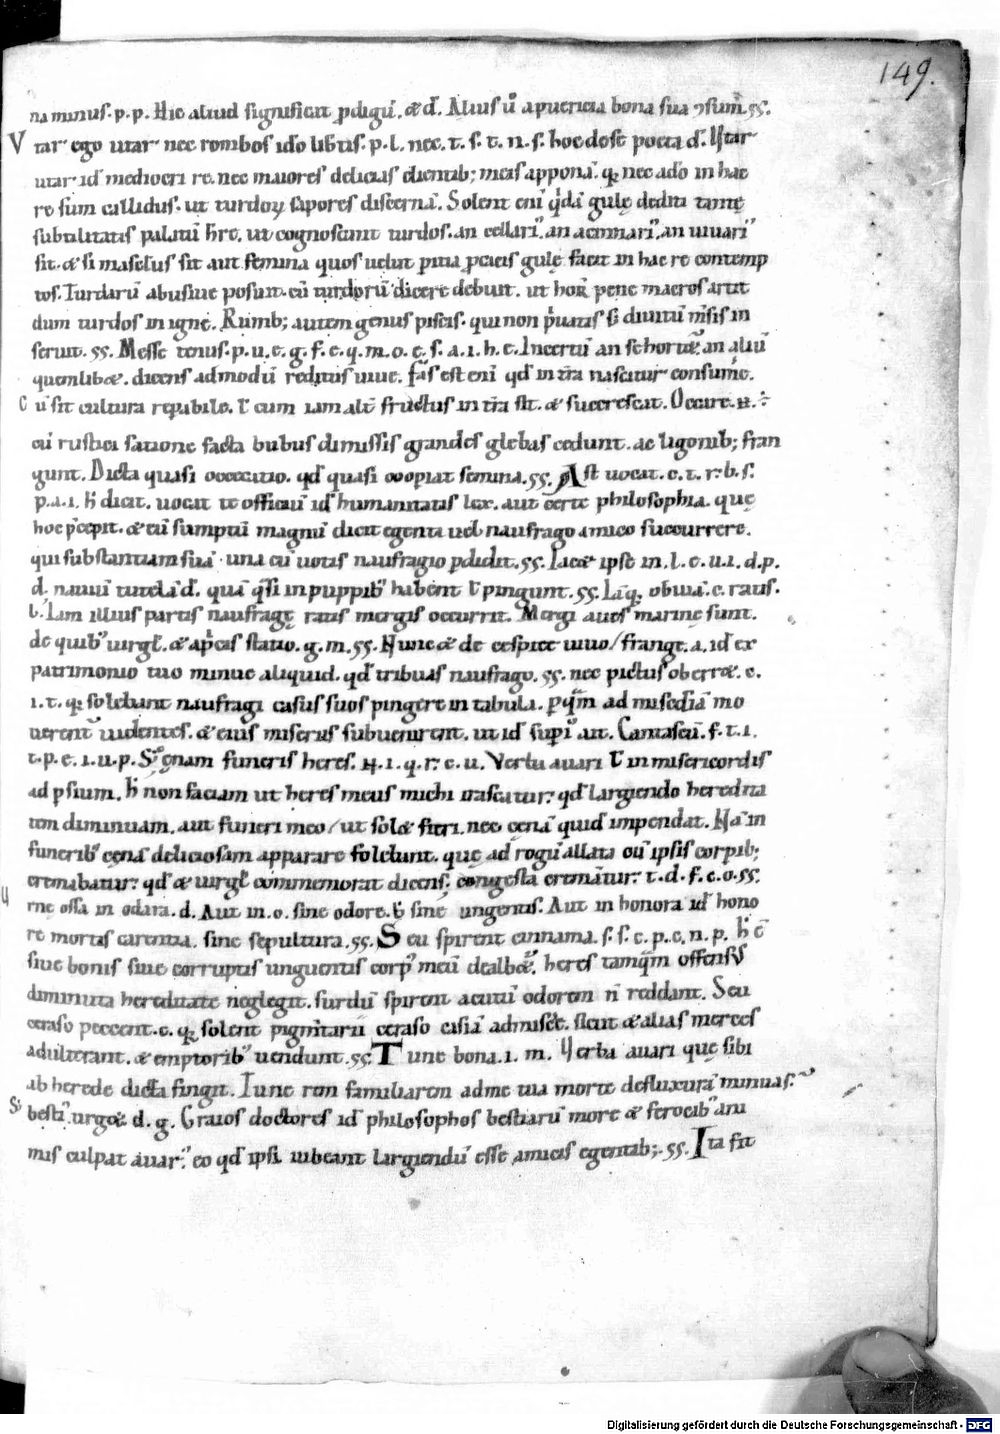 149.
na minus. p. p. Hic aliud significat ꝑdigū. & d̄. Alius ū a puericia bona sua ꝯsum̄. ss.
V tar ego utar nec rombos ido libtis. p. l. nec. t. s. t. n. s. hoc dose poeta d̄. Utar
utar id mediocri re. nec maiores delicias clientab; meis apponā. q̨ nec adō in hac
re sum callidus. ut turdoꝝ sapores discernā. Solent enī q̄dā gulę dediti tantę
subtilitatis palatū h̄re. ut cognoscant turdos. an cellarii. an acinnarii. an uiuarii
sit. & si masclus sit aut femina quos uelut pitia pcacis gulę facit in hac re contemp
tos. Turdarū abusiue posuit. cū turdorū dicere debuit. ut horū pene macros artit
dum turdos in igne. Rumb; autem genus piscis. qui non p̄uatis s; diuitū m̄sis in
seruit. ss. Messe tenus. p. u. e. g. f. e. q. m. o. c. s. a. i. h. e. Incertū an sehortet. an aliū
quemlib&. dicens ad modū reditus uiue. fas est enī qd̄ in tr̄a nascitur consumę.
C ū sit cultura repabile. t̄ cum iam alt̄ fructus in tr̄a sit. & succrescat. Occare. ē.
cū rustici satione facta bubus dimissis grandes glebas cedunt. ac ligonib; fran
gunt. Dicta quasi occecatio. qd̄ quasi cooꝑiat semina. ss. Ast uocat. e. t. r. b. s.
p. a. i. h̄ dicit. uocat te officiū id humanitatis lex. aut certe philosophia. quę
hoc p̄cepit. & cū sumptū magnū dicit egenti uel naufrago amico succurrere.
qui substantiam suā. una cū uotis naufragio ꝑdidit. ss. Iac& ipse in. l. e. u. i. d. p.
d. naui tutelā d̄. quā q̄si in puppib; habent t̄ pingunt. ss. Iāq̨ obuiā. c. ratis.
l. Iam illius partis naufragę ratis mergis occurrit. Mergi aues marinę sunt.
de quib; uirgl̄. & ap̄cis statio. g. m. ss. Nunc & de cespite uiuo / frange. a. id ex
patrimonio tuo minue aliquid. qd̄ tribuas naufrago. ss. nec pictus oberr&. e.
i. t. q̨ solebant naufragi casus suos pingere in tabula. ꝑ quā ad misediā mo
uerent uidentes. & eius miseriis subuenirent. ut id sup̄i ait. Cantasset̄. f. t. i.
t. p. e. i. u. p. S; cęnam funeris heres. N. i. q. r. c. u. Verba auari t̄ in misericordis
ad ꝑsium. h̄ non faciam ut heres meus michi irascatur. qd̄ largiendo heredita
tem diminuam. aut funeri meo / ut sol& fieri. nec cęnā quid impendat. Nā in
funerib; cęnā deliciosam apparare solebunt. quę ad rogū allata cū ipsis corpib;
cremabatur. qd̄ & uirgl̄ commemorat dicens; congesta cremātur. t. d. f. c. o. ss.
rne ossa in odara. d. Aut in. o. sine odore. t̄ sine ungentis. Aut in honora id hono
re mortis carentia. sine sepultura. ss. Seu spirent cinnama. s. s. c. p. c. n. p. h̄ ē
siue bonis siue corruptis unguentis corp; meū dealb&. heres tamquā offensus
diminuta hereditate neglegit. surdū spiren acutū odoren n̄ reddant. Seu
ceraso peccent. c. q̨ solent pigmtarii ceraso casiā admisce. sicut & alias merces
adulterant. & emptorib; uendunt. ss. Tune bona. i. m. Verba auari quę sibi
ab herede dicta fingit. Tune rem familiarem ad me tua morte defluxurā minuas.
S; besti. urget. d. g. Graios doctores id philosophos bestiarū more & ferocib; ani
mis culpat auar. eo qd̄ ipsi iubeant largiendū esse amicis egentib;. ss. Ita fit
Digitalisierung gefördert durch die Deutsche Forschungsgemeinschaft - DFG